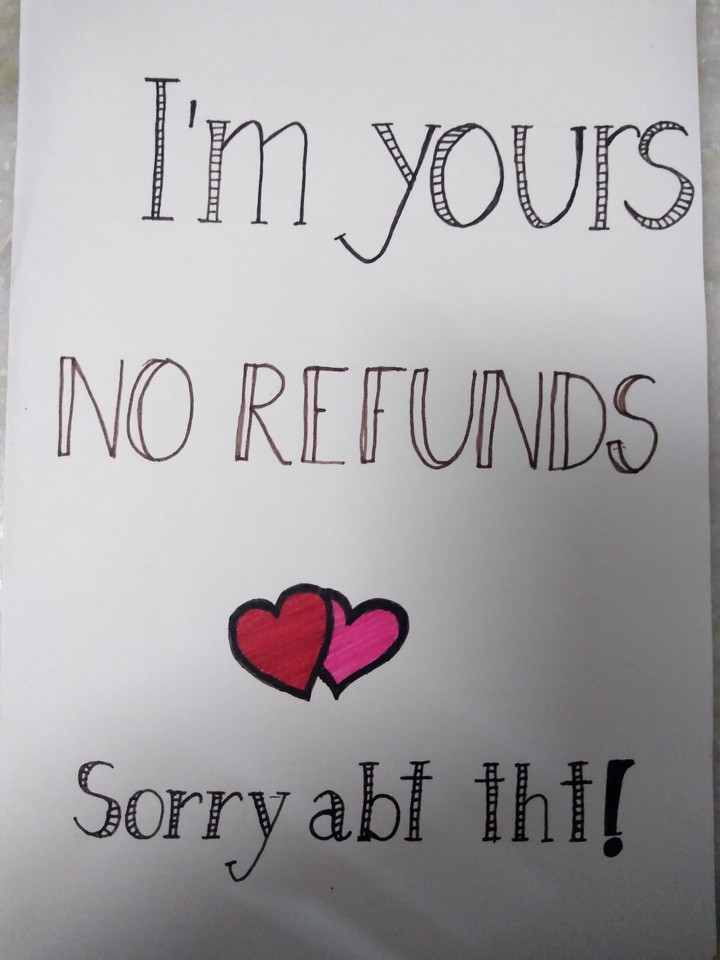 I'm yours
NO REFUNDS
Sorry abt tht!